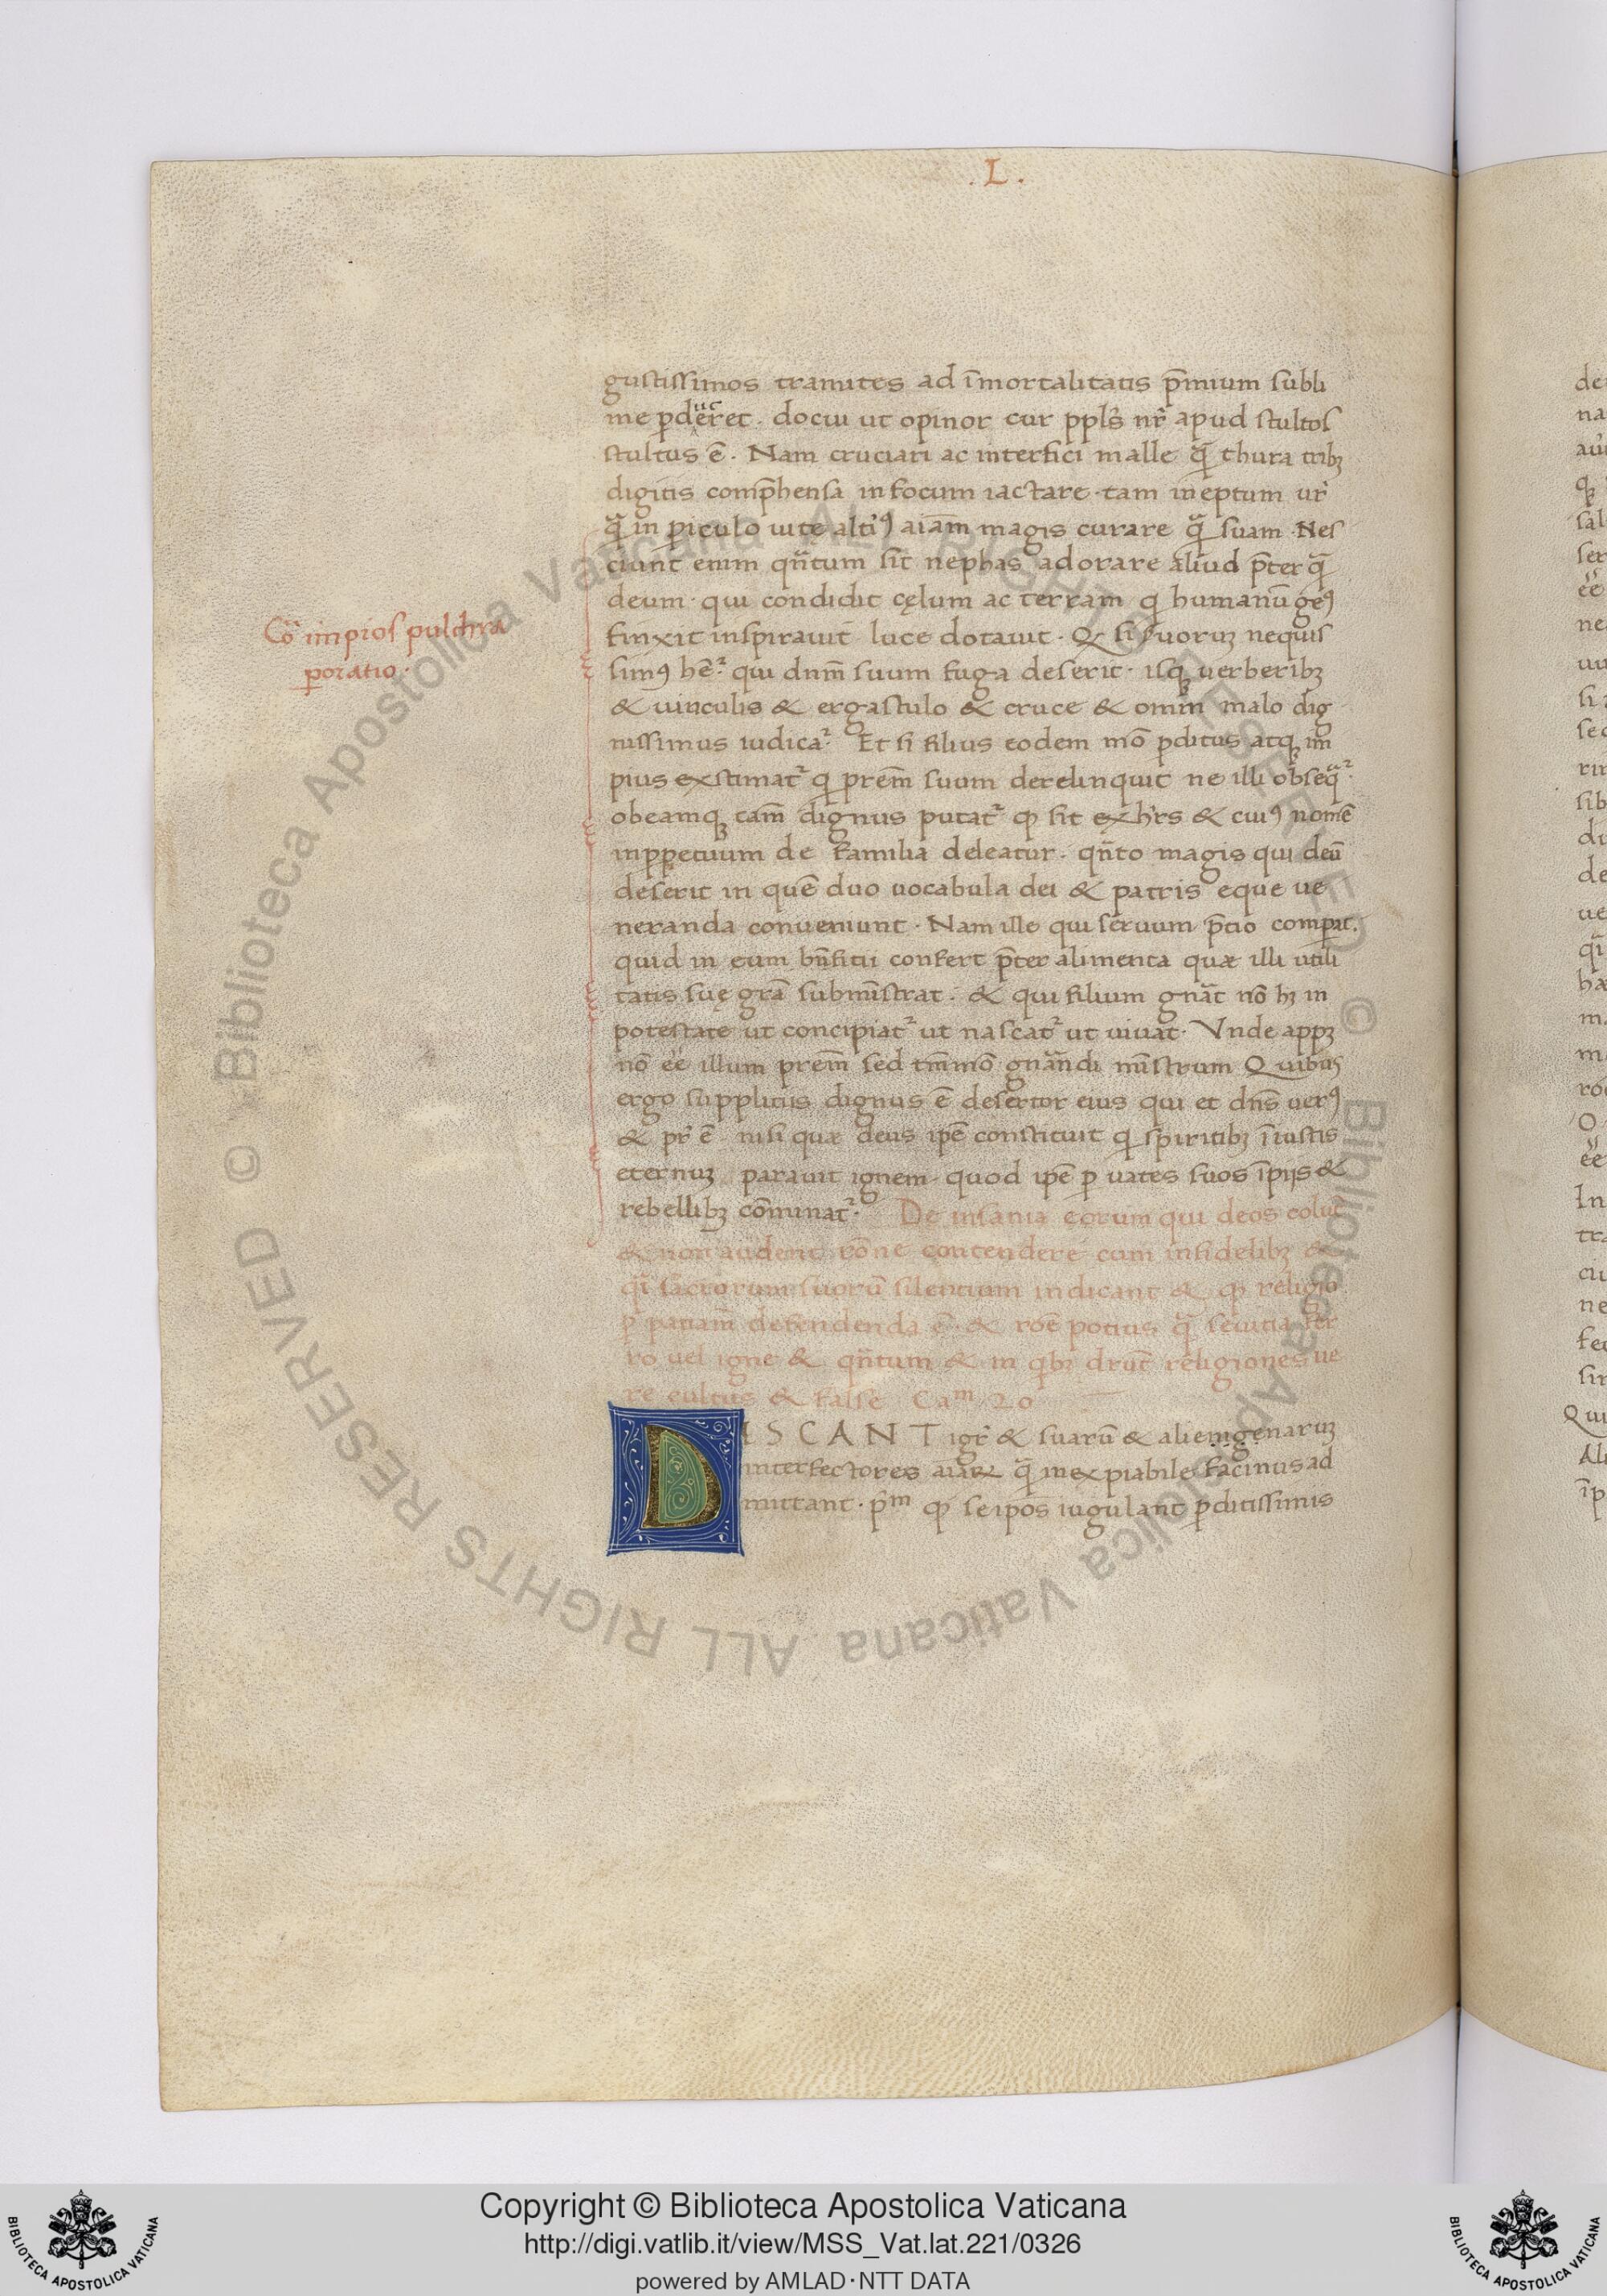 .L.
gustissimos tramites ad īmortalitatis p̄mium subli
me ꝑduc̄eret. docui ut opinor cur ppl̄s nr̄ apud stultos
stultus ē. Nam cruciari ac interfici malle q̄ thura tribꝫ
digitis comp̄hensa in focum iactare. tam ineptum ur̄
q̄ in ꝑiculo uitę alti᷒ꝰ aiām magis curare q̄ suam. Nes
ciunt enim qn̄tum sit nephas adorare aliud p̄ter q̄
deum. qui condidit cęlum ac terram q humanū geꝰ
finxit inspirauit luce dotauit. Q si suoruꝫ nequis
simꝰ hē. qui dnm̄ suum fuga deserit. isqꝫ uerberibꝫ
& uinculis & ergastulo & cruce & omni malo dig
nissimus iudica. Et si filius eodem mō ꝑditus atqꝫ im
pius exstimat q pre᷒m suum derelinquit ne illi obseq
obeamqꝫ cam̄ dignus putat ꝙ sit exhr̄s & cuiꝰ nomē
inꝑpetuum de familia deleatur. qn̄to magis qui deū
deserit in quē duo uocabula dei & patris eque ue
neranda conueniunt. Nam ille qui seruum p̄tio compat.
quid in eum bn̄fitii confert p̄ter alimenta quæ illi utili
tatis suę gra᷒ subministrat. & qui filium gnāt nō hꝫ in
potestate ut concipiat ut nascat ut uiuat. Vnde appꝫ
nō ēē illum prēm sed tm̄mō gnāndi mīstrum Quibus
ergo supplitiis dignus ē desertor eius qui et dn̄s uerꝰ
& pr̄ ē nisi quæ deus ipē constituit q spiritibꝫ īiustis
eternuꝫ parauit ignem quod ipē ꝑ uates suos īpijs &
rebellibꝫ cōminat.
De insania eorum qui deos colūt
& non audent rōne contendere cum infidelibꝫ &
q̄ sacrorum suorū silentium indicant & ꝙ religio
ꝑ patiam̄ defendenda ē. & roē potius q̄ seuitia fer
ro uel igne & qn̄tum & in qbꝫ drūt religiones ue
re cultus & false Caᵐ 20
DISCANT igr̄ & suarū & alienigenaruꝫ
interfectores aiaꝝ q̄ inexpiabile facinus ad
mittant. p̄ᵐ ꝙ seipōs iugulant ꝑditissimis
Cō impios pulchra
ꝑoratio.
Copyright © Biblioteca Apostolica Vaticana
http://digi.vatlib.it/view/MSS_Vat.lat.221/0326
powered by AMLAD·NTT DATA
BIBLIOTECA APOSTOLICA VATICANA
BIBLIOTECA APOSTOLICA VATICANA
© Biblioteca Apostolica Vaticana ALL RIGHTS RESERVED
© Biblioteca Apostolica Vaticana ALL RIGHTS RESERVED